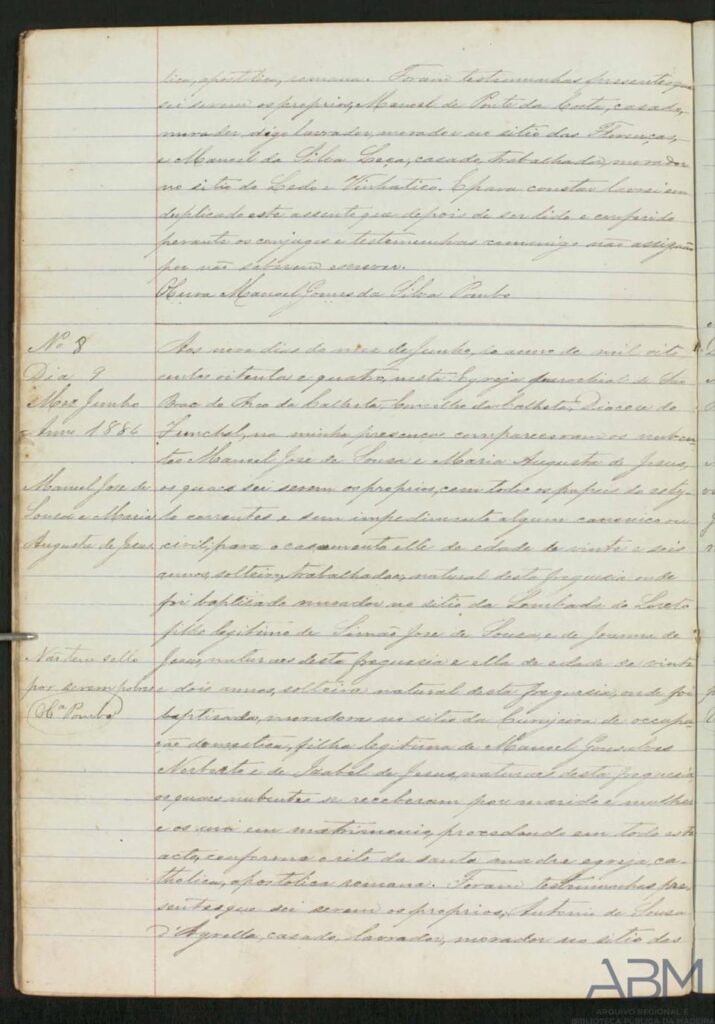 lica, apostolica, romana. Foram testemunhas presentes, que
sei serem os proprios, Manoel de Ponte da Costa, casado,
morador, digo lavrador, morador no sitio das Florenças,
e Manoel da Silva Leça, casado, trabalhador, morador
no sitio do Ledo e Vinhatico. E para constar lavrei em
duplicado este assento que depois de ser lido e conferido
perante os conjuges e testemunhas commigo não assignão
por não saberem escrever.
O Cura Manoel Gomes da Silva Pombo
Nº 8
Dia 9
Mez Junho
Anno 1884
Manuel Jose de
Sousa e Maria
Augusta de Jesus
Não teve sello
por serem pobres
Cª Pombo
Aos nove dias do mez de Junho, do anno de mil oito
centos oitenta e quatro, nesta Egreja parochial de São
Braz do Arco da Calheta, Concelho da Calheta, Diocese do
Funchal, na minha presença compareceram os nuben-
tes Manuel Jose de Sousa e Maria Augusta de Jesus,
os quaes sei serem os proprios, com todos os papeis do esty-
lo correntes e sem impedimento algum canonico ou
civil, para o casamento elle de edade de vinte e seis
annos, solteiro, trabalhador, natural desta freguesia onde
foi baptizado morador no sitio da Lombada do Loreto
filho legitimo de Simão Jose de Sousa, e de Joanna de
Jesus, naturaes desta freguesia e ella de edade de vinte
e dois annos, solteira natural desta freguesia, onde foi
baptizada, moradora no sitio da de occupa-
ção domestica, filha legitima de Manuel Gonsalves
Norberto e de Izabel de Jesus, naturaes desta freguesia
os quaes nubentes se receberam por marido e mulher
e os uni em matrimonio, procedendo em todo este
acto, conforme o rito da santa madre egreja, ca-
tholica, apostolica romana. Foram testemunhas pre-
sentes que sei serem os proprios, Antonio de Sousa
d'Agrella, casado, lavrador, morador no sitio das
ABM
ARQUIVO REGIONAL E
BIBLIOTECA PÚBLICA DA MADEIRA